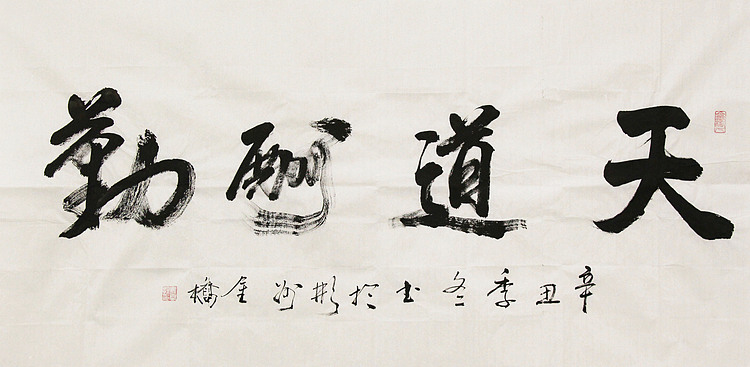 天道酬勤
辛丑季冬书於彬州金橋